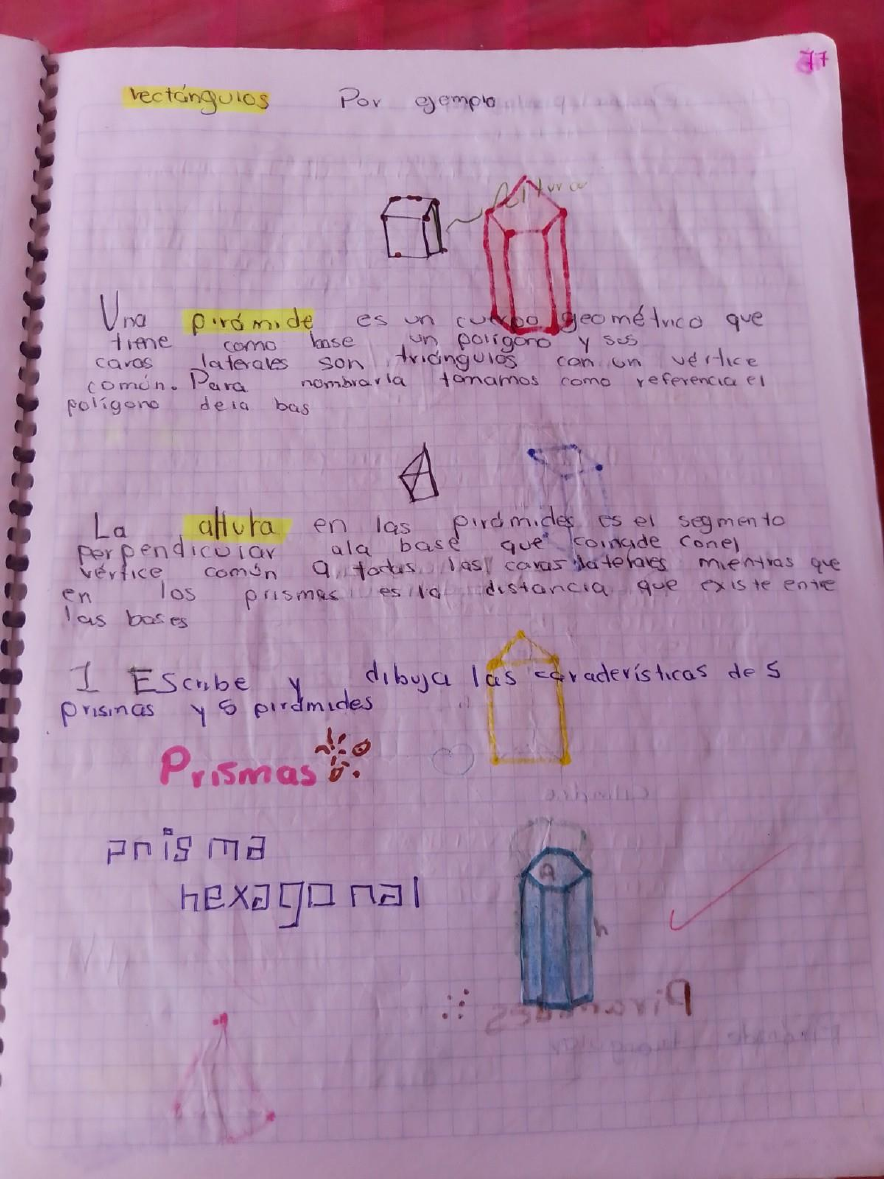 77
rectángulos Por ejemplo
Altura
Una pirámide es un cuerpo geométrico que
tiene como base un polígono y sus
caras laterales son triángulos con un vértice
común. Para nombrarla tomamos como referencia el
polígono dela bas
La altura en las pirámides es el segmento
perpendicular ala base que coincide conel
vértice común a todas las caras laterales mientras que
en los prismas es la distancia que existe entre
las bases
1 Escribe y dibuja las características de 5
prismas y 5 pirámides
Prismas
prisma
hexagonal
A
h